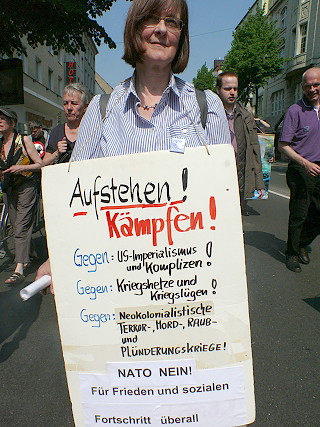 Aufstehen!
Kämpfen!
Gegen: US-Imperialismus
und Komplizen!
Gegen: Kriegshetze und
Kriegslügen!
Gegen: Neokolonialistische
TERROR-, MORD-, RAUB-
und
PLÜNDERUNGSKRIEGE!
NATO NEIN!
Für Frieden und sozialen
Fortschritt überall